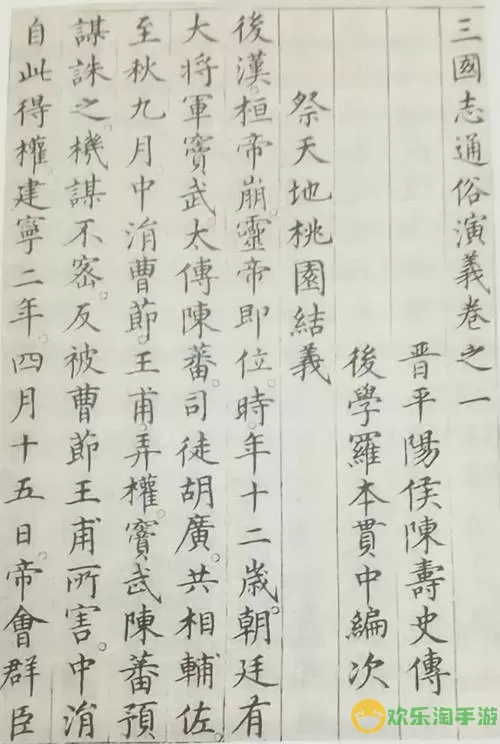 三國志通俗演義卷之一
晉平陽侯陳壽史傳
後學羅本貫中編次
祭天地桃園結義
後漢。桓帝崩。靈帝即位。時年十二歲。朝廷有
大將軍竇武。太傅陳蕃。司徒胡廣。共相輔佐。
至秋九月中涓曹節。王甫弄權。竇武陳蕃預
謀誅之。機謀不密。反被曹節王甫所害。中涓
自此得權。建寧二年。四月十五日。帝會群臣
欢乐淘手游